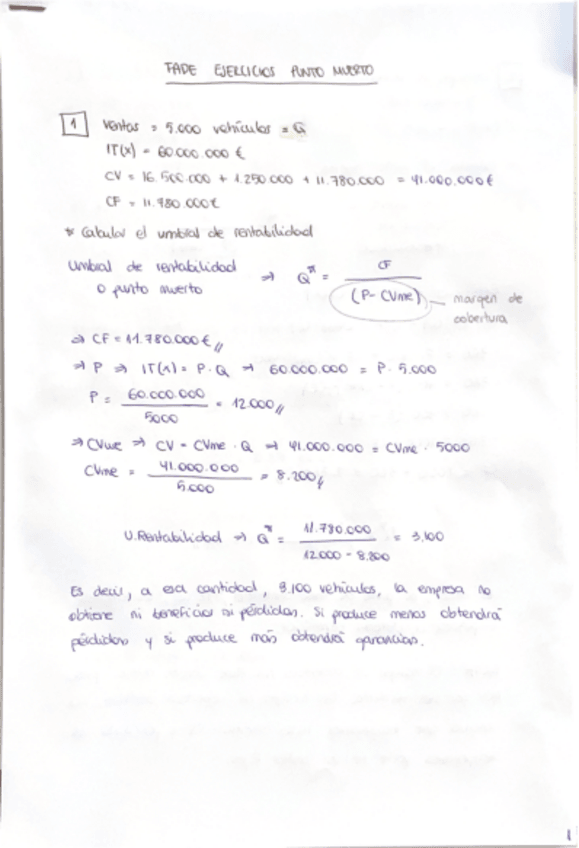 FADE EJERCICIOS PUNTO MUERTO
1 Ventas = 5.000 vehículos = Q
IT(x) = 60.000.000 €
CV = 16.500.000 + 1.250.000 + 11.780.000 = 41.000.000 €
CF = 11.780.000 €
* Calcular el umbral de rentabilidad
Umbral de rentabilidad
o punto muerto
⇒ Q* = CF / (P - CVme)
margen de
cobertura
⇒ CF = 11.780.000 € //
⇒ P ⇒ IT(x) = P · Q ⇒ 60.000.000 = P · 5.000
P = 60.000.000 / 5000 = 12.000 //
⇒ CVme ⇒ CV = CVme · Q ⇒ 41.000.000 = CVme · 5000
CVme = 41.000.000 / 5.000 = 8.200 //
U.Rentabilidad ⇒ Q* = 11.780.000 / 12.000 - 8.200 = 3.100
Es decir, a esa cantidad, 3.100 vehículos, la empresa no
obtiene ni beneficios ni pérdidas. Si produce menos obtendrá
pérdidas y si produce más obtendrá ganancias.
1